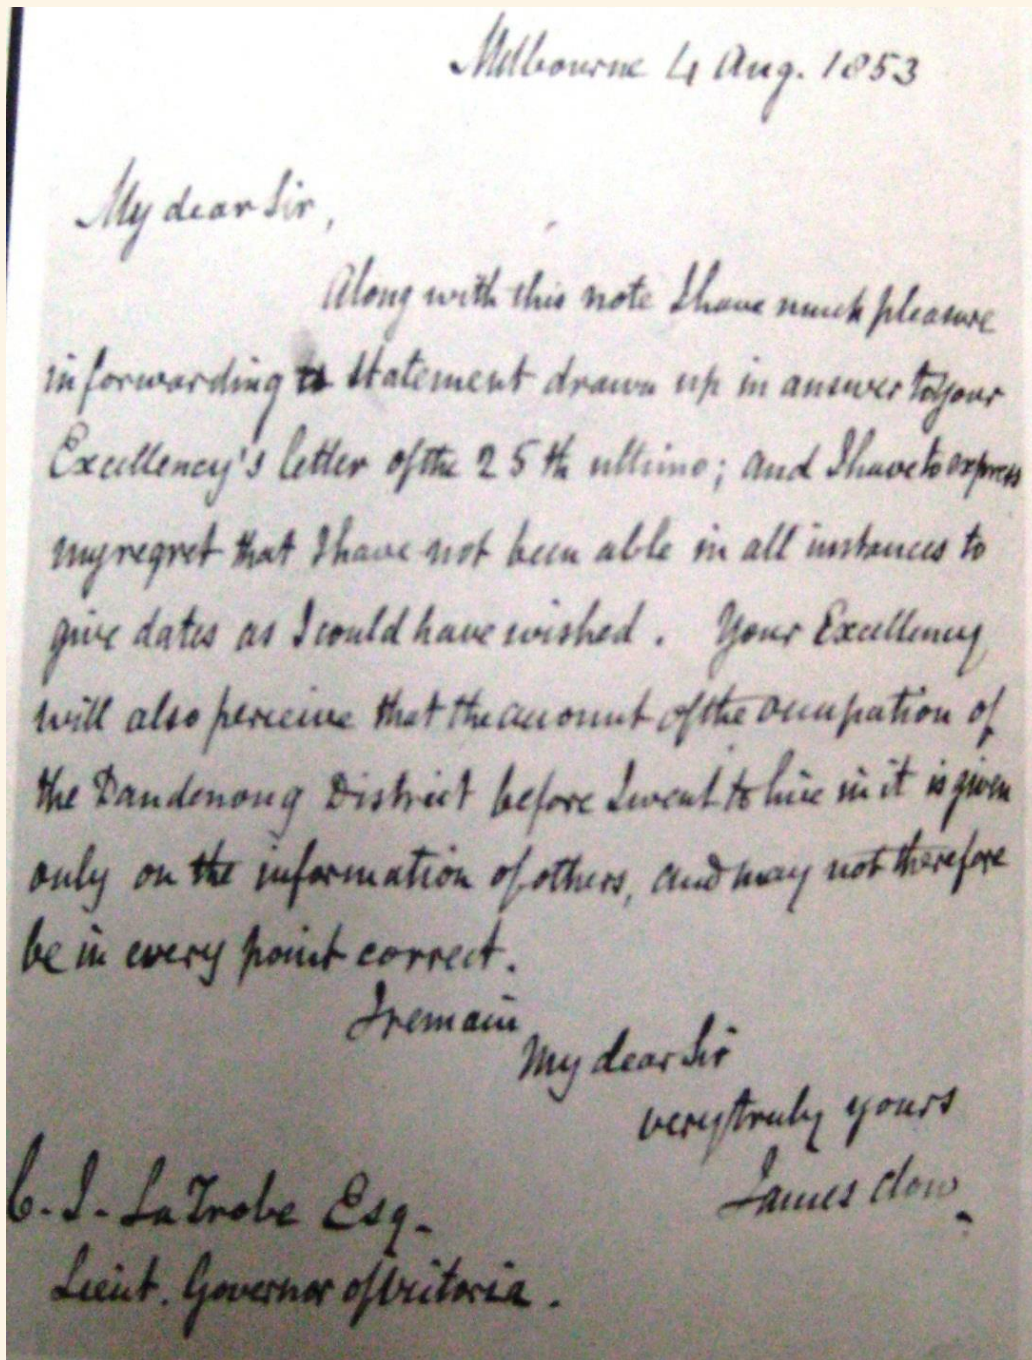 Melbourne 4 Aug. 1853
My dear Sir,
Along with this note I have much pleasure
in forwarding statement drawn up in answer to your
Excellency's letter of the 25th ultimo; and I have to express
my regret that I have not been able in all instances to
give dates as I could have wished. Your Excellency
will also perceive that the account of the occupation of
the Dandenong District before I went to live in it is given
only on the information of others, and may not therefore
be in every point correct.
I remain
My dear Sir
very truly yours
James Clow.
C. J. LaTrobe Esq.
Lieut. Governor of Victoria.